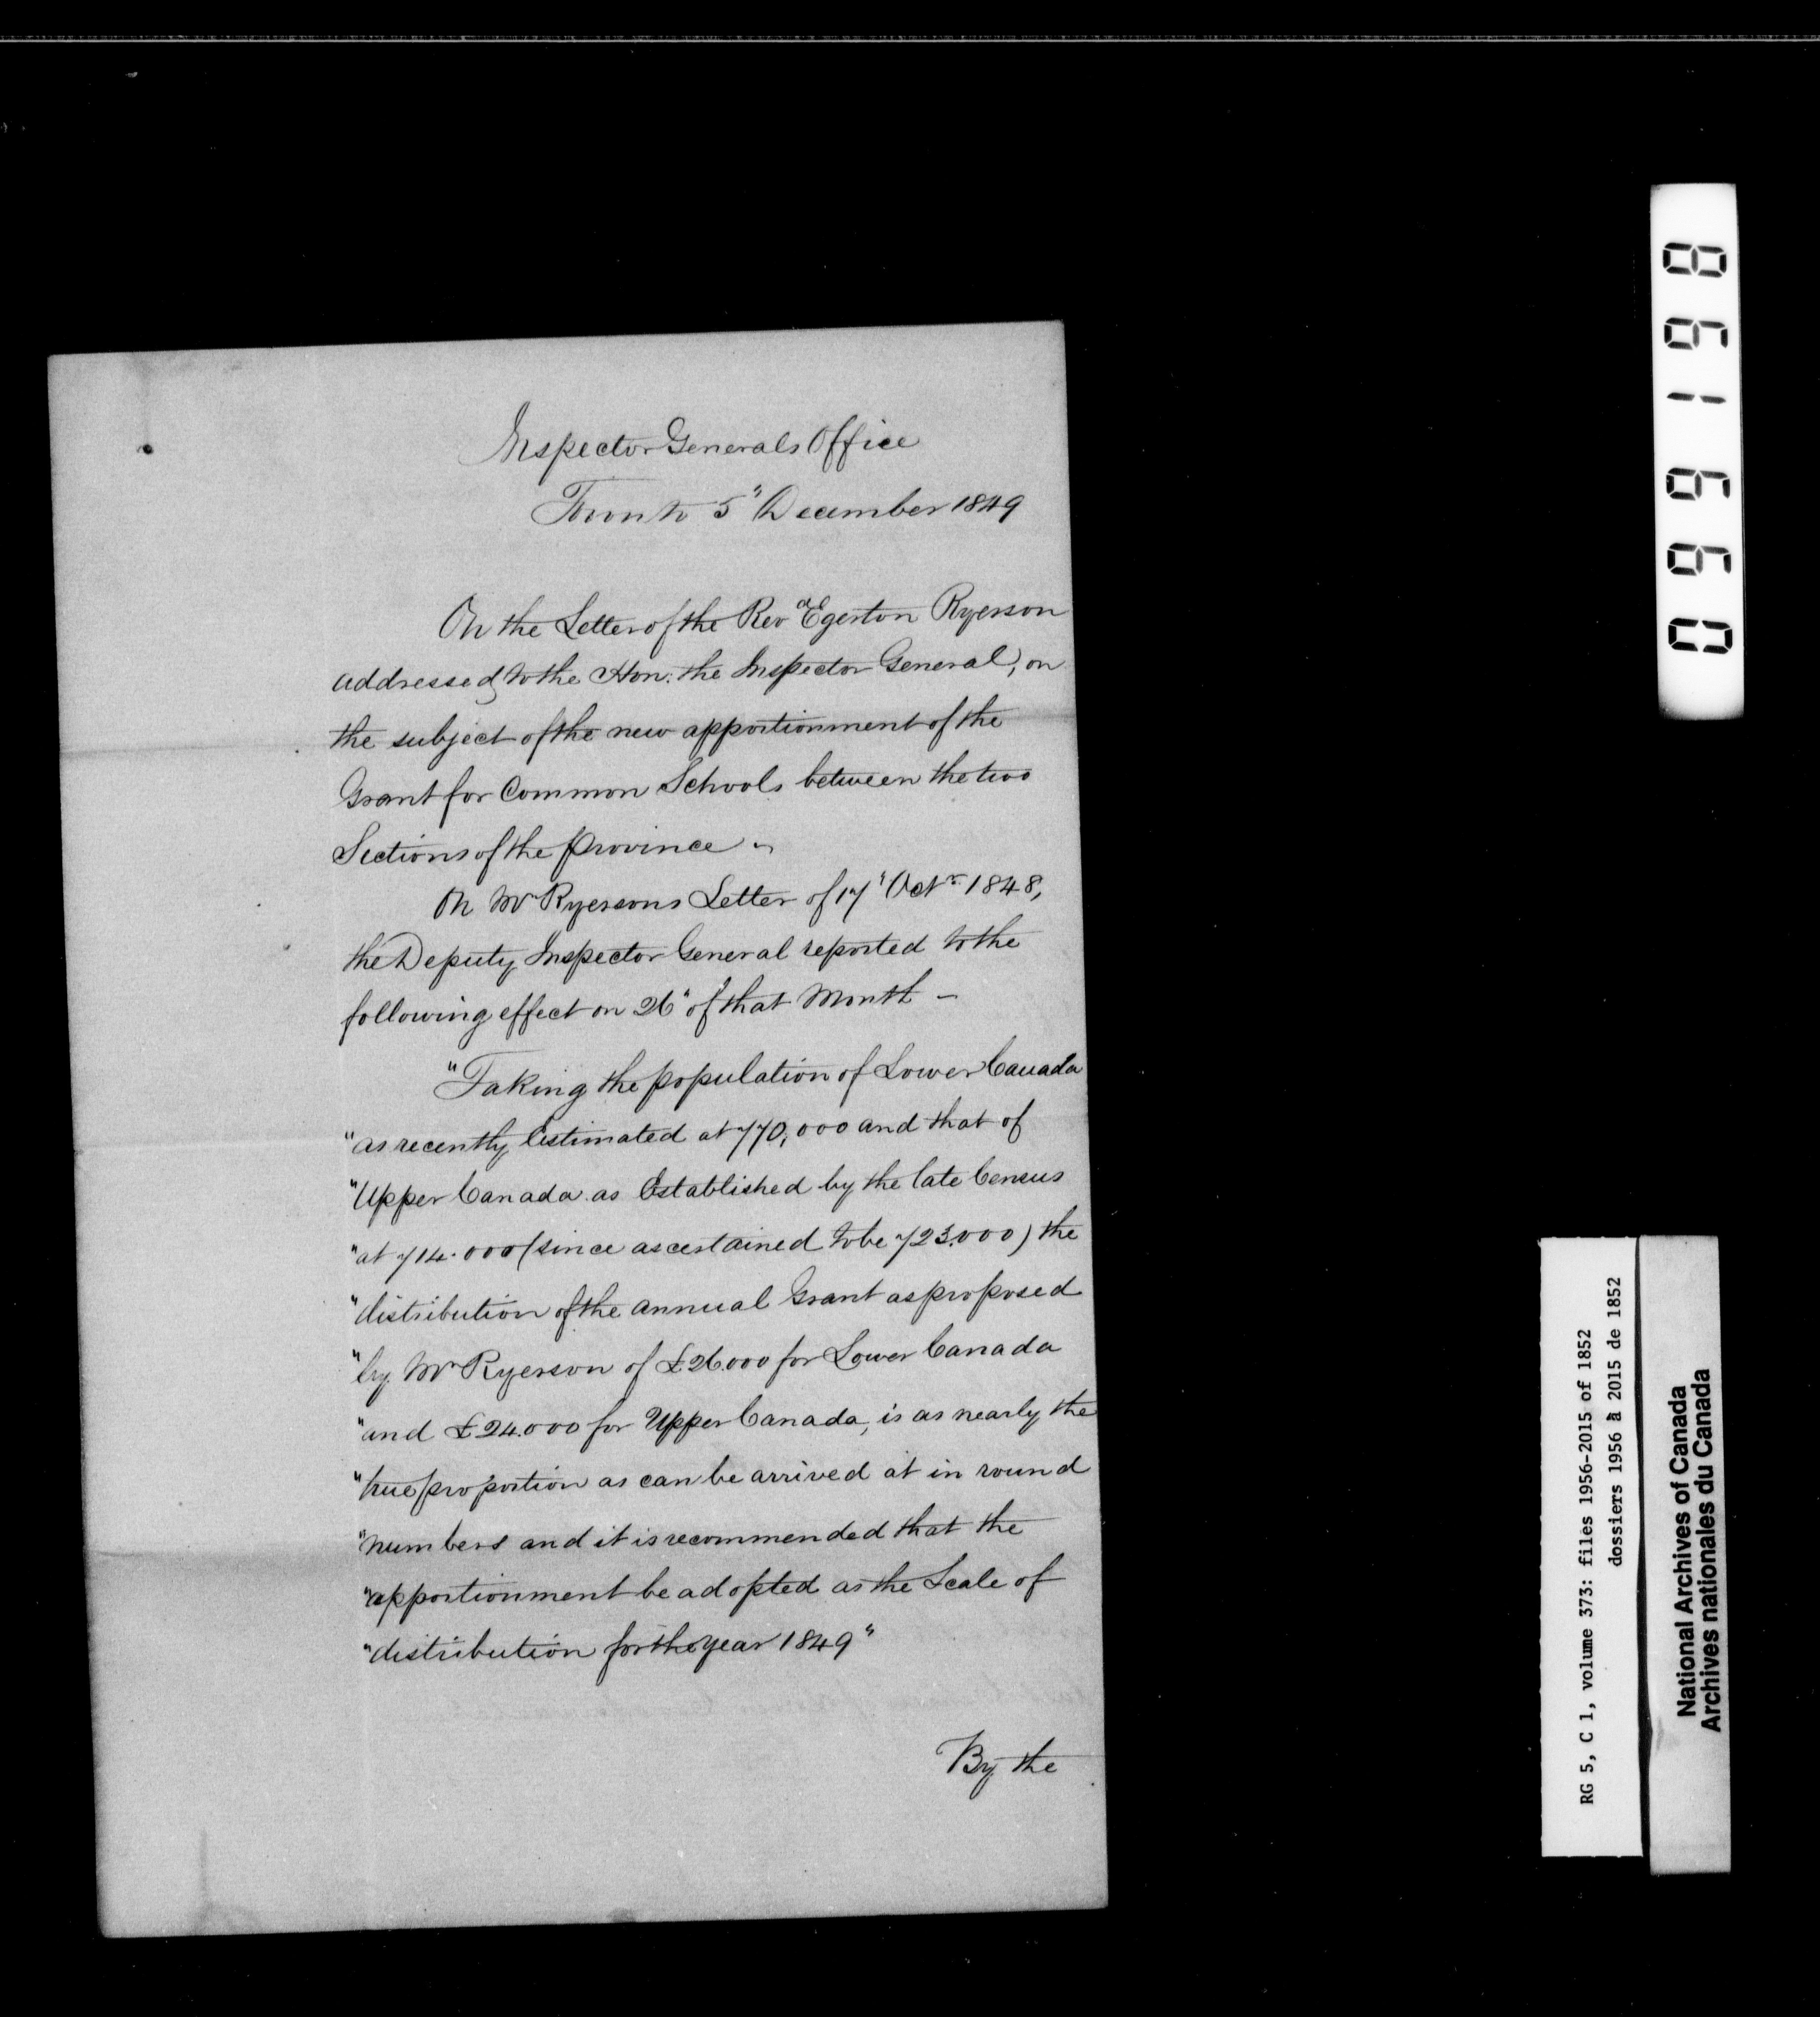 Inspector Generals Office
Toronto 5" December 1849
On the Letter of the Revd Egerton Ryerson
addressed to the Hon: the Inspector General, on
the subject of the new apportionment of the
Grant for Common Schools between the two
Sections of the province
On Mr Ryersons Letter of 17" Octr 1848,
the Deputy Inspector General reported to the
following effect on 26" of that Month –
"Taking the population of Lower Canada
"as recently Estimated at 770,000 and that of
"Upper Canada as Established by the late Census
"at 714.000 (since ascertained to be 723.000) the
"distribution of the annual Grant as proposed
"by Mr Ryerson of £26.000 for Lower Canada
"and £24.000 for Upper Canada, is as nearly the
"true proportion as can be arrived at in round
"numbers and it is recommended that the
"apportionment be adopted as the Scale of
"distribution for the year 1849"
By the
099198
RG 5, C 1, volume 373: files 1956-2015 of 1852
dossiers 1956 à 2015 de 1852
National Archives of Canada
Archives nationales du Canada